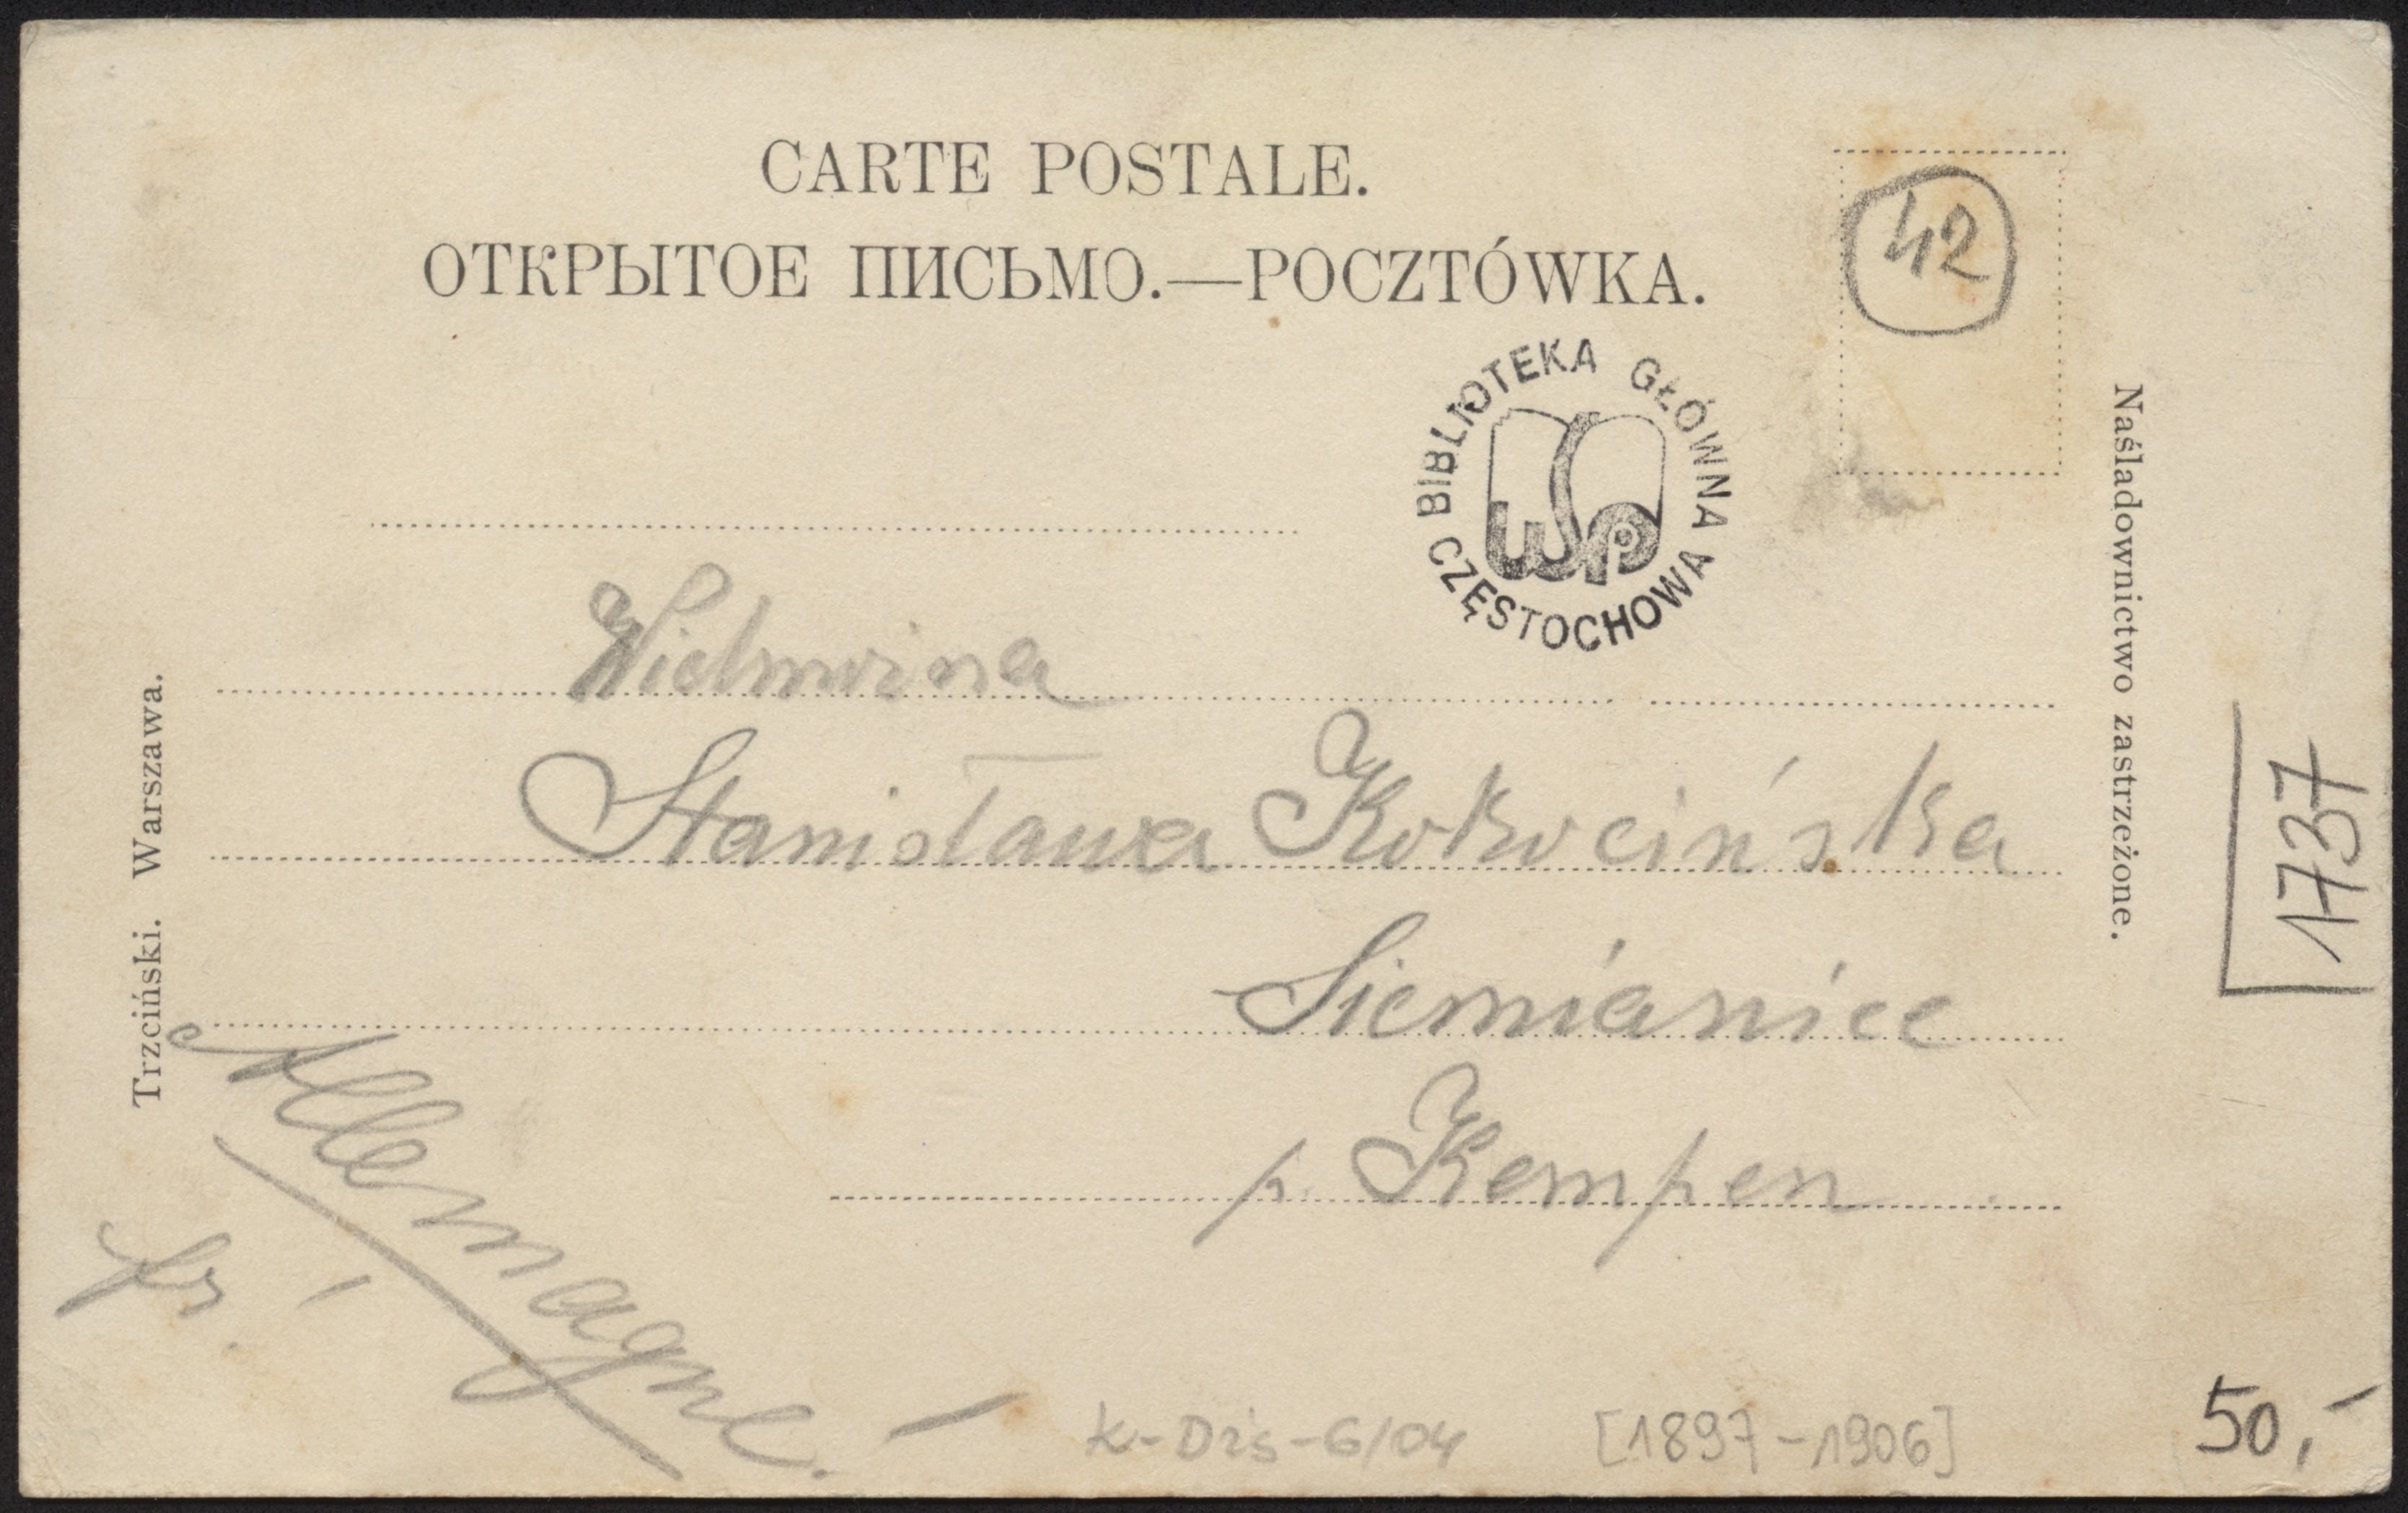 CARTE POSTALE.
ОТКРЫТОЕ ПИСЬМО.—POCZTÓWKA.
42
BIBLIOTEKA GŁÓWNA
WSP
CZĘSTOCHOWA
Wielmożna
Stanisława Kokocińska
Siemianice
p. Kempen
Allemagne.
Trzciński. Warszawa.
Naśladownictwo zastrzeżone.
1737
K-Dżs-6/04
[1897-1906]
50,-